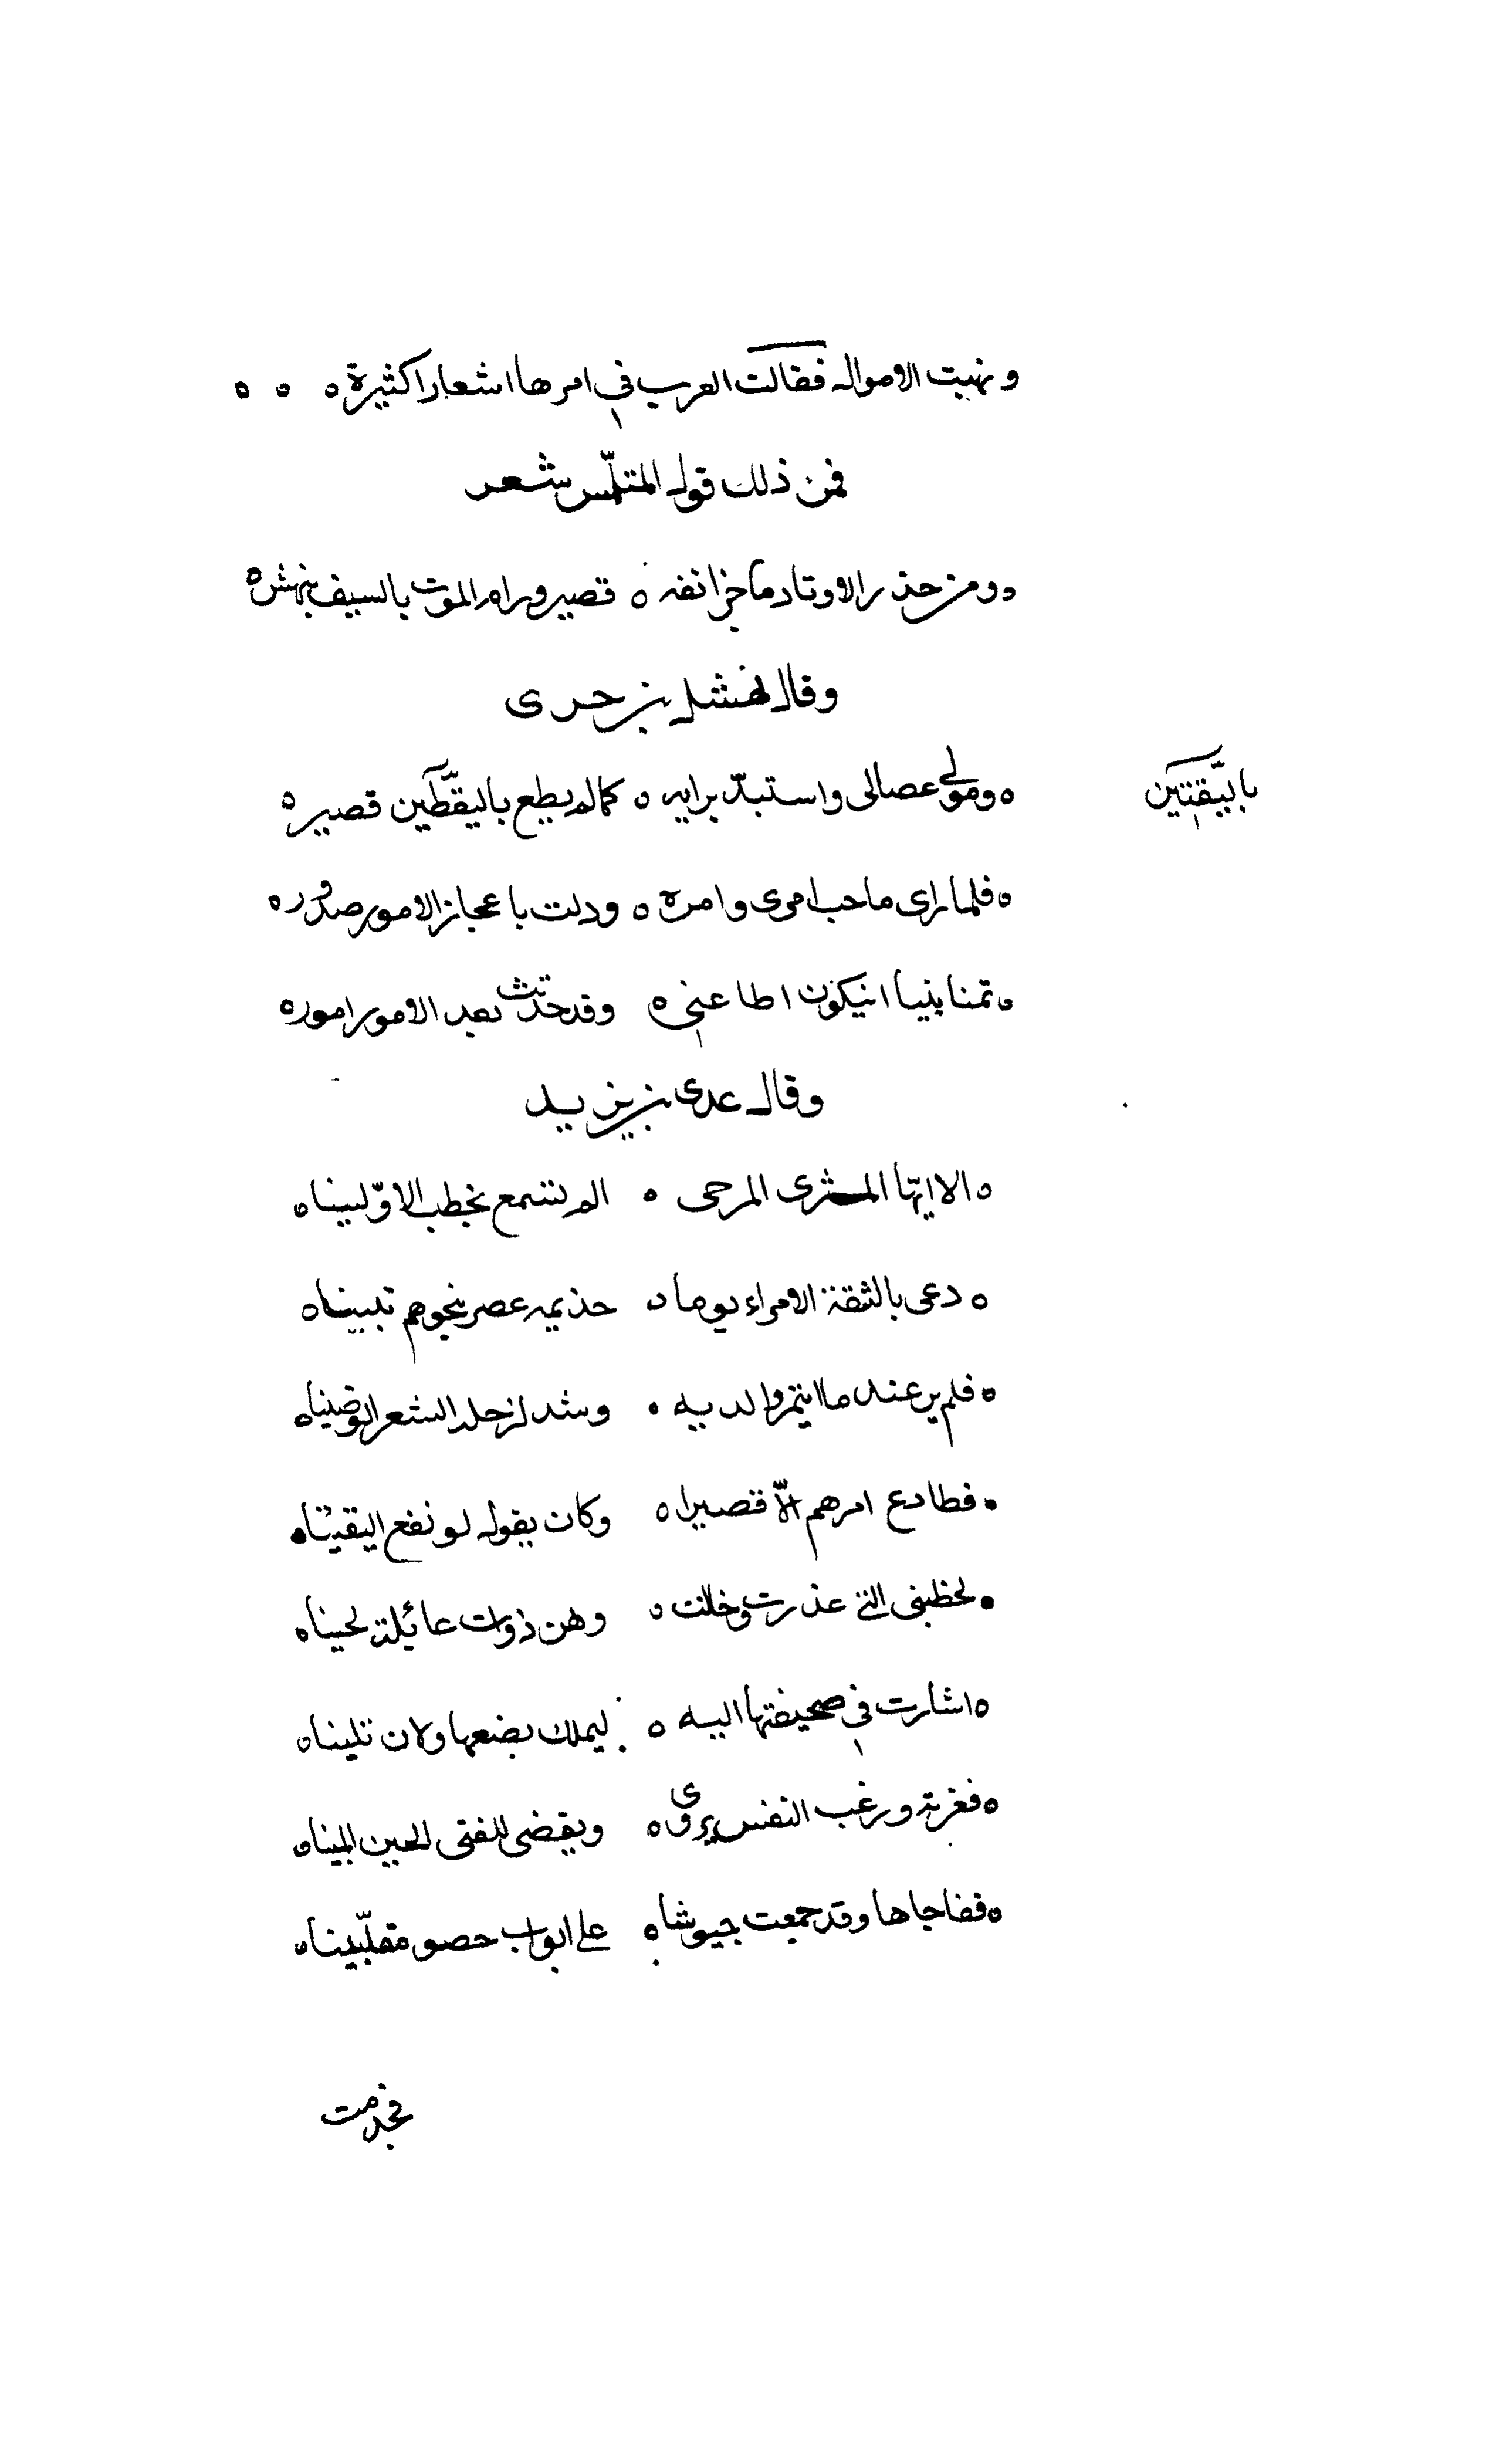 ونهبت الاموال فقالت العرب في امرها اشعارا كثيرة ه ه ه
فمن ذلك قول المتلمّس شعر
ومن حذر الاوتاد ما خز انفه ه قصير ورام الموت بالسيف بنهش ه
وقال نهشل بن حرى
ه ومولى عصالى واستبدّ برايه ه كما لم يطع باليقّطين قصير ه
بالبّيقتين
ه فلما راى ما حب امرى وامره ه ودلت باعجاز الامور صدور ه
ه تمنا بنيا انيكون اطاعني ه وقد حدثت بعد الامور امور ه
وقال عدى بن يزيد
ه الا ايّها المثرى المرجى ه الم تسمع بخطب الاوّلينا ه
ه دعى بالثقة الامراء يوما ه جذيمه عصر ينجوهم تبينا ه
ه فلم ير عند ما ايتمروا لديه ه وشد لرحله السفر الوضينا ه
ه فطاوع امرهم الّا قصيرا ه وكان يقول لو نفع اليقينا ه
ه لخطبنى التى غدرت وخانت ه وهن ذوات غائلة لحينا ه
ه اشارت في صحيفتها اليه ه ليملك بضعها ولان تلينا ه
ه فغرته ورغب النفس يردى ه ويقضى للفتى الحين المبينا ه
ه ففاجاها وقد جمعت جيوشا ه على ابواب حصو مقلّبينا ه
فخدمت